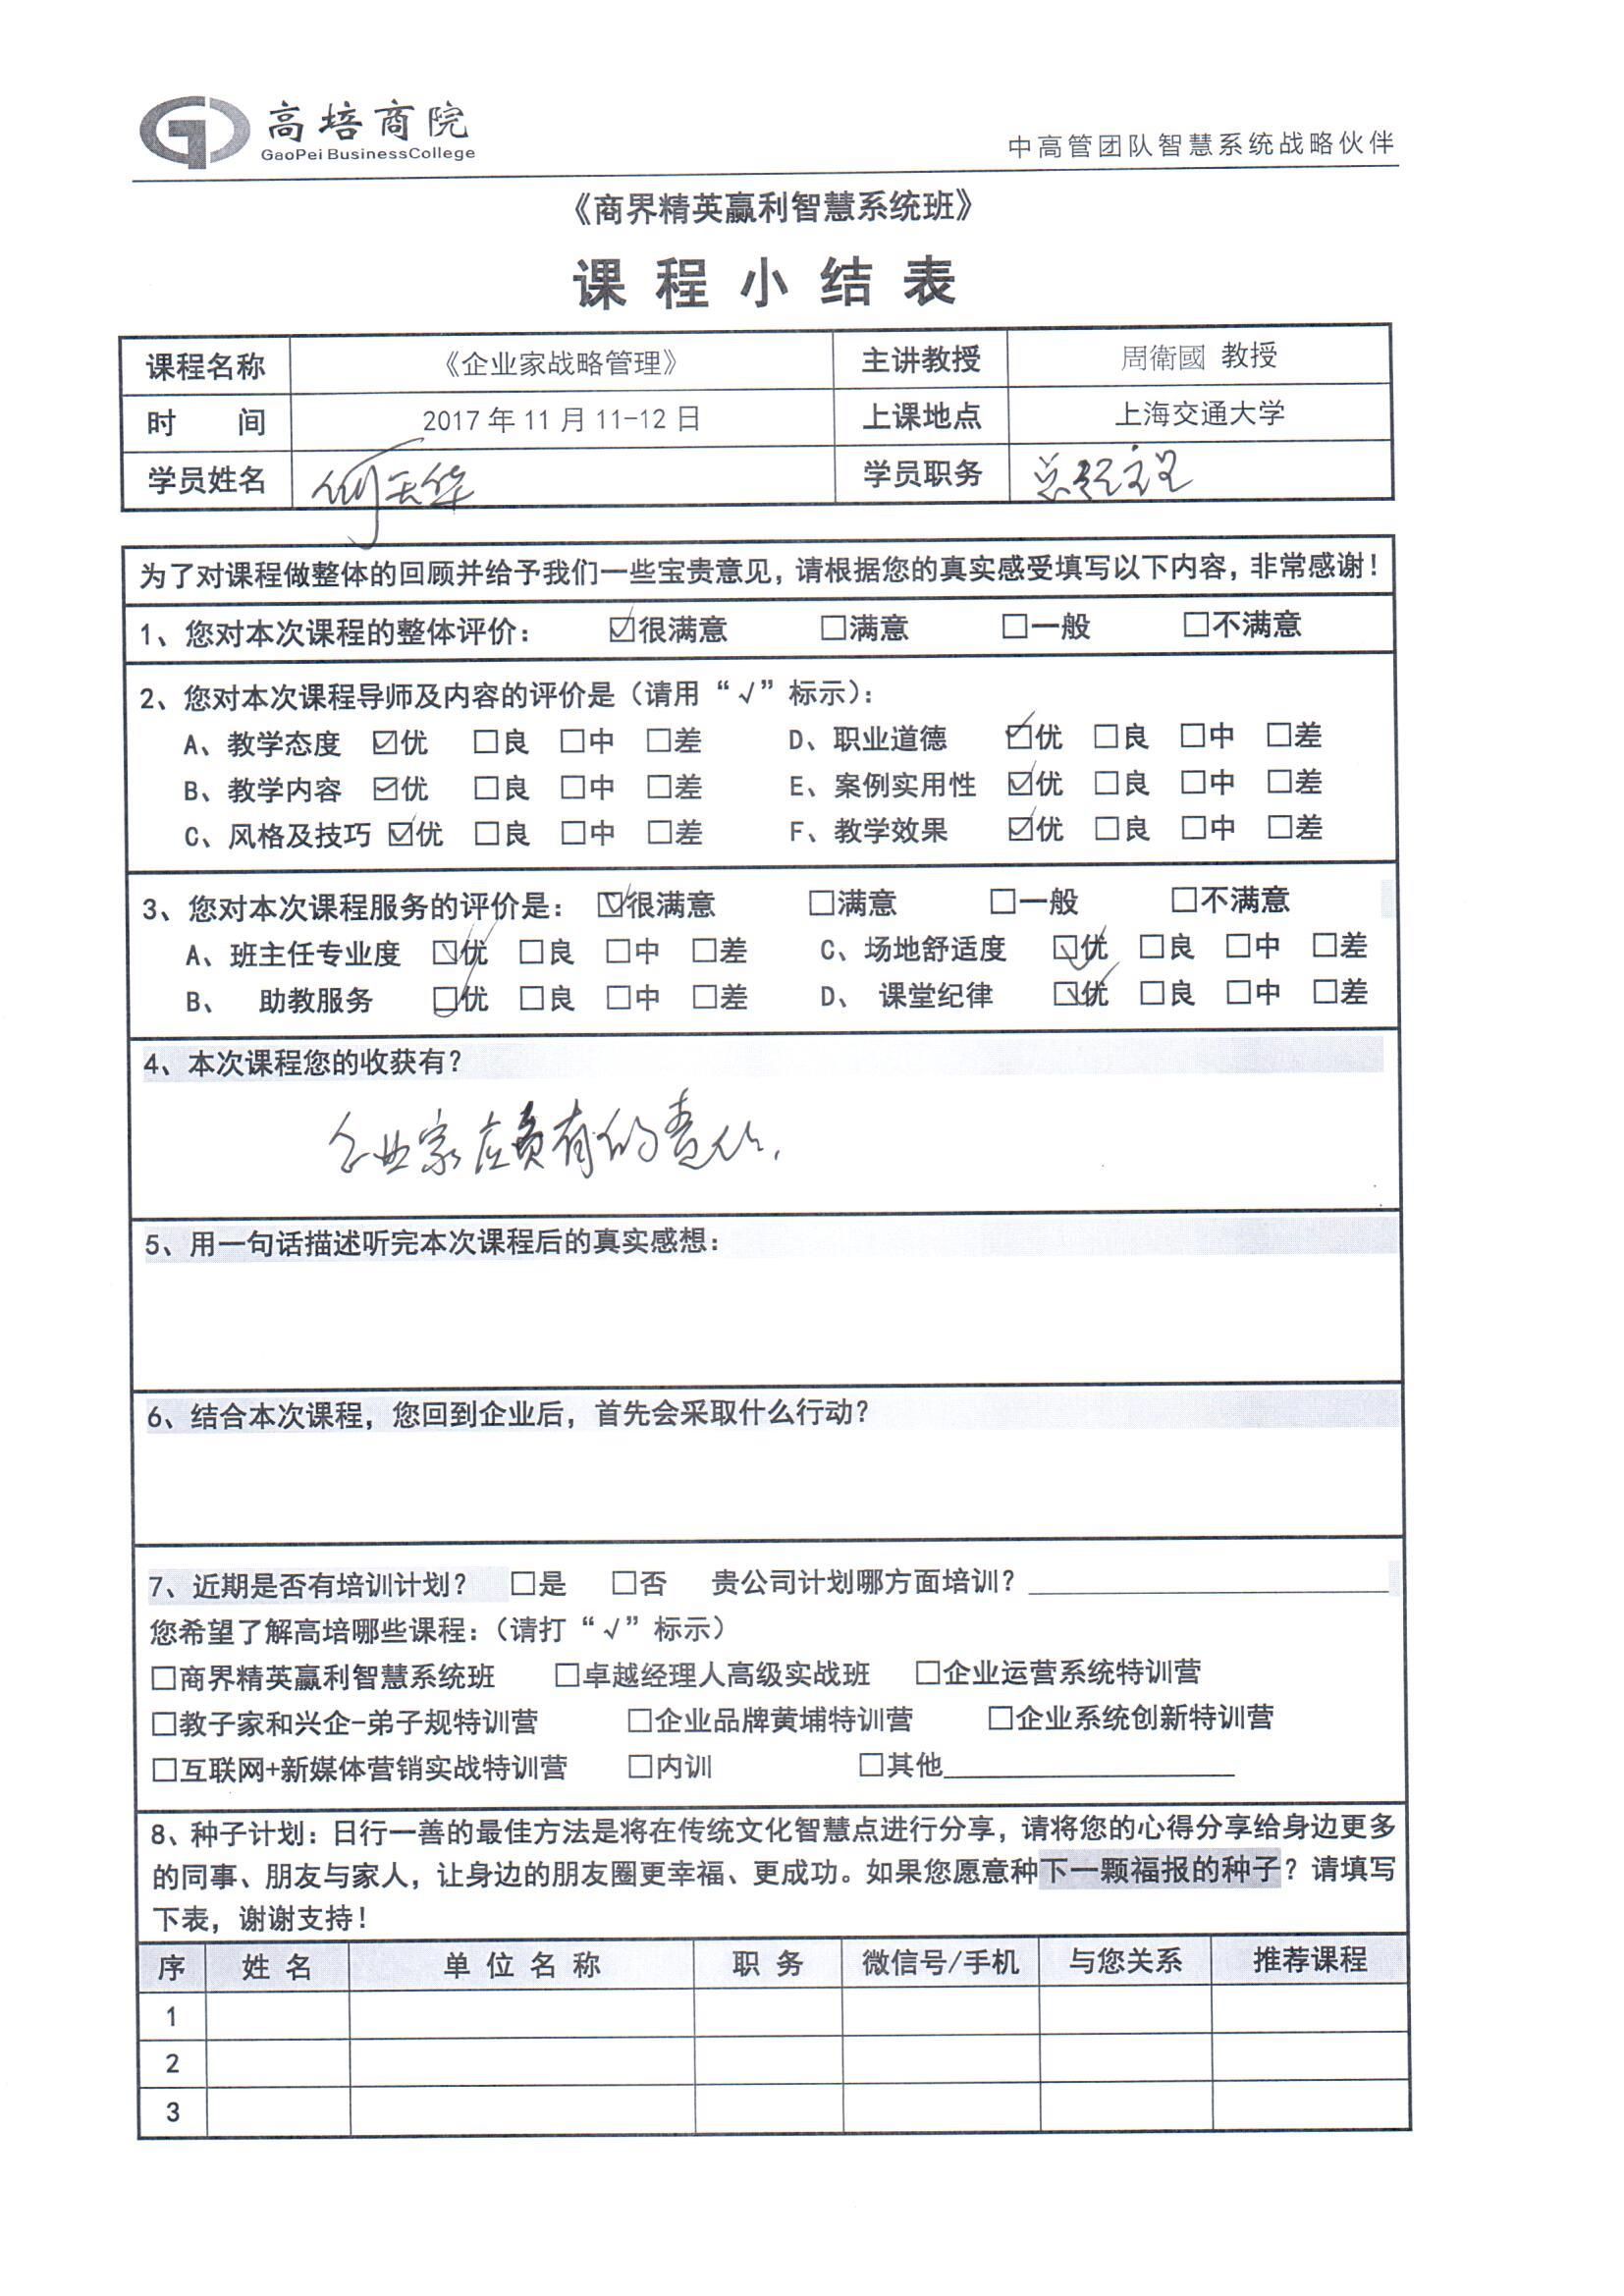 高培商院
GaoPei BusinessCollege
中高管团队智慧系统战略伙伴
《商界精英赢利智慧系统班》
课程小结表
课程名称 《企业家战略管理》 主讲教授 周衛國 教授
时 间 2017年11月11-12日 上课地点 上海交通大学
学员姓名 何天华 学员职务 总经理
为了对课程做整体的回顾并给予我们一些宝贵意见，请根据您的真实感受填写以下内容，非常感谢！
1、您对本次课程的整体评价： ☑很满意 □满意 □一般 □不满意
2、您对本次课程导师及内容的评价是（请用“√”标示）：
A、教学态度 ☑优 □良 □中 □差 D、职业道德 ☑优 □良 □中 □差
B、教学内容 ☑优 □良 □中 □差 E、案例实用性 ☑优 □良 □中 □差
C、风格及技巧 ☑优 □良 □中 □差 F、教学效果 ☑优 □良 □中 □差
3、您对本次课程服务的评价是： ☑很满意 □满意 □一般 □不满意
A、班主任专业度 ☑优 □良 □中 □差 C、场地舒适度 ☑优 □良 □中 □差
B、 助教服务 ☑优 □良 □中 □差 D、 课堂纪律 ☑优 □良 □中 □差
4、本次课程您的收获有？
企业家应负有的责任.
5、用一句话描述听完本次课程后的真实感想：
6、结合本次课程，您回到企业后，首先会采取什么行动？
7、近期是否有培训计划？ □是 □否 贵公司计划哪方面培训？
您希望了解高培哪些课程：（请打“√”标示）
□商界精英赢利智慧系统班 □卓越经理人高级实战班 □企业运营系统特训营
□教子家和兴企-弟子规特训营 □企业品牌黄埔特训营 □企业系统创新特训营
□互联网+新媒体营销实战特训营 □内训 □其他
8、种子计划：日行一善的最佳方法是将在传统文化智慧点进行分享，请将您的心得分享给身边更多
的同事、朋友与家人，让身边的朋友圈更幸福、更成功。如果您愿意种下一颗福报的种子？请填写
下表，谢谢支持！
序 姓名 单位名称 职务 微信号/手机 与您关系 推荐课程
1
2
3